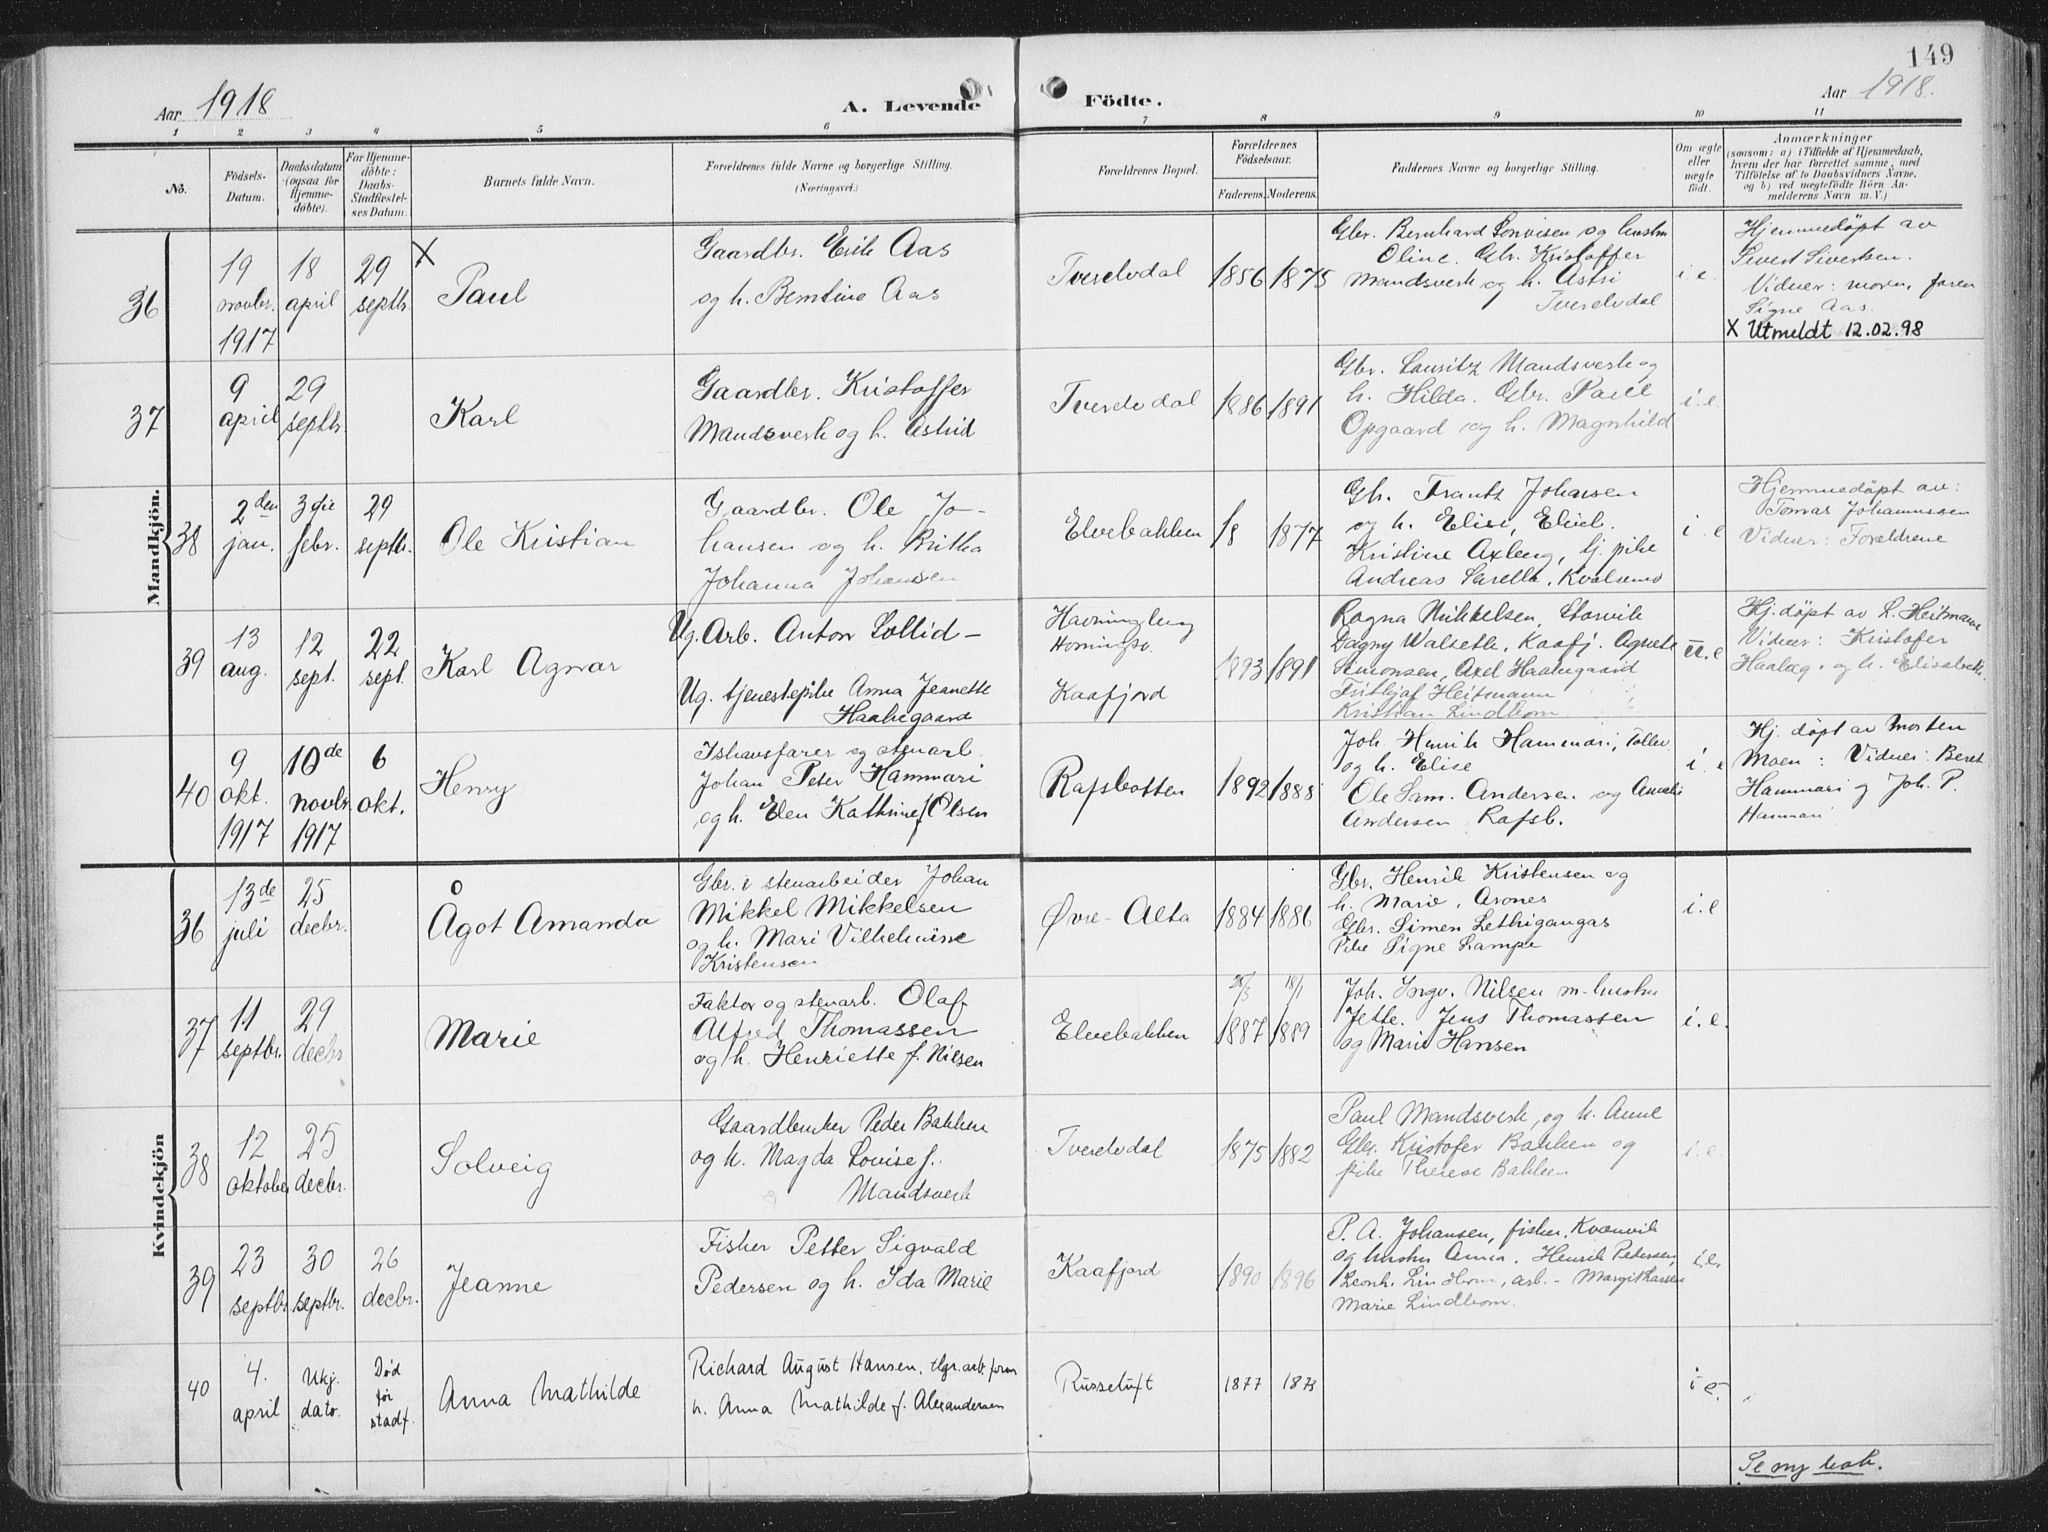 149
Aar 1918
A. Levende
Födte.
Aar 1918.
1 2 3 4 5 6 7 8 9 10 11
No.
Födsels-
Datum.
Daabsdatum
(ogsaa for
Hjemme-
döbte).
For Hjemme-
döbte:
Daabs-
Stadfæstel-
ses Datum.
Barnets fulde Navn.
Forældrenes fulde Navne og borgerlige Stilling.
(Næringsvei.)
Forældrenes Bopæl.
Forældrenes
Födselsaar.
Faderens. Moderens.
Faddernes Navne og borgerlige Stilling.
Om ægte
eller
uægte
födt.
Anmærkninger
(saasom: a) i Tilfælde af Hjemmedaab,
hvem der har forrettet samme, med
Tilföielse af to Daabsvidners Navne,
og b) ved uægtefödte Börn An-
melderens Navn m. V.)
Mandkjön.
36
19
novbr.
1917
18
april
29
septbr.
X
Paul
Gaardbr. Erik Aas
og h. Berntine Aas
Tverelvdal
1856 1875
Gbr. Bernhard Sonvisen og hustru
Oline. Gbr. Kristoffer
Mandsverk og h. Astri
Tverelvdal
i. e.
Hjemmedøpt av
Sivert Sivertsen.
Vidner: moren, faren
Signe Aas.
X Utmeldt 12.02.98
37
9
april
29
septbr.
Karl
Gaardbr. Kristoffer
Mandsverk og h. Astrid
Tverelvdal
1886 1891
Gbr. Lauritz Mandsverk og
h. Hilda. Gbr. Paul
Opgaard og h. Magnhild
i. e.
38
2den
jan.
3die
febr.
29
septbr.
Ole Kristian
Gaardbr. Ole Jo-
hansen og h. Britha
Johanna Johansen
Elvebakken
18 1877
Gbr. Frantz Johansen
og h. Elise, Elveb.
Kristine Axberg, tj. pike
Andreas Sarella, Kvalsund
i e
Hjemmedøpt av:
Tomas Johannessen
Vidner: Forældrene
39
13
aug.
12
sept.
22
sept.
Karl Agnar
Ug. Arb. Anton Sollid -
Ug. tjenestepike Anna Jeanette
Haahegaard
Havningberg
Honningsv.
Kaafjord
1893 1891
Ragna Mikkelsen, Storvik
Dagny Walsetb., Kaafj. Agnete
Simonsen, Axel Haahegaard
Fritjof Heitmann
Kristian Lindbom
u. e
Hj. døpt av L. Heitmann
Vidner: Kristofer
og h. Elisabeth.
40
9
okt.
1917
10de
novbr.
1917
6
okt.
Henry
Ishavsfarer og stenarb.
Johan Peter Hammari
og h. Elen Kathrine f. Olsen
Rafsbotten
1892 1888
Joh. Henrik Hammari, Tollev.
og h. Elise
Ole Sam. Andersen og Amalie
Andersen Rafsb.
i. e
Hj. døpt av Morten
Moen: Vidner: Beret
Hammari og Joh. P.
Hammari
Kvindekjön
36
13de
juli
25
decbr.
Ågot Amanda
Gbr. & stenarbeider Johan
Mikkel Mikkelsen
og h. Mari Vilhelmine
Kristensen
Øvre-Alta
1884 1886
Gbr. Henrik Kristensen og
h. Marie, Arones
Gbr. Simen Lethigangas
Pike Signe Lampe
i. e
37
11
septbr.
29
decbr.
Marie
Faktor og stenarb. Olaf
Alfred Thomassen
og h. Henriette f. Nilsen
Elvebakken
28/3 18/1
1887 1889
Joh. Ingv. Nilsen m. hustru
Jette. Jens Thomassen
og Marie Hansen
i. e.
38
12
oktober
25
decbr.
Solveig
Gaardbruker Peder Bakken
og h. Magda Lovise f.
Mandsverk
Tverelvdal
1875 1882
Paul Mandsverk, og h. Anne
Gbr. Kristofer Bakken og
pike Therese Bakken
i. e.
39
23
septbr.
30
septbr.
26
decbr.
Jeanne
Fisker Petter Sigvald
Pedersen og h. Ida Marie
Kaafjord
1890 1896
P. A. Johansen, fisker, Kvænvik
og hustru Anna. Henrik Pedersen,
Leonh. Lindbom, arb. - Margit Larsen
Marie Lindbom.
i. e.
40
4.
april
Ukj.
dato.
Død
før
stadf.
Anna Mathilde
Richard August Hansen, tlgr. arb. form
h. Anna Mathilde f. Alexandersen
Russeluft
1877 1878
i e.
Se ny bok.